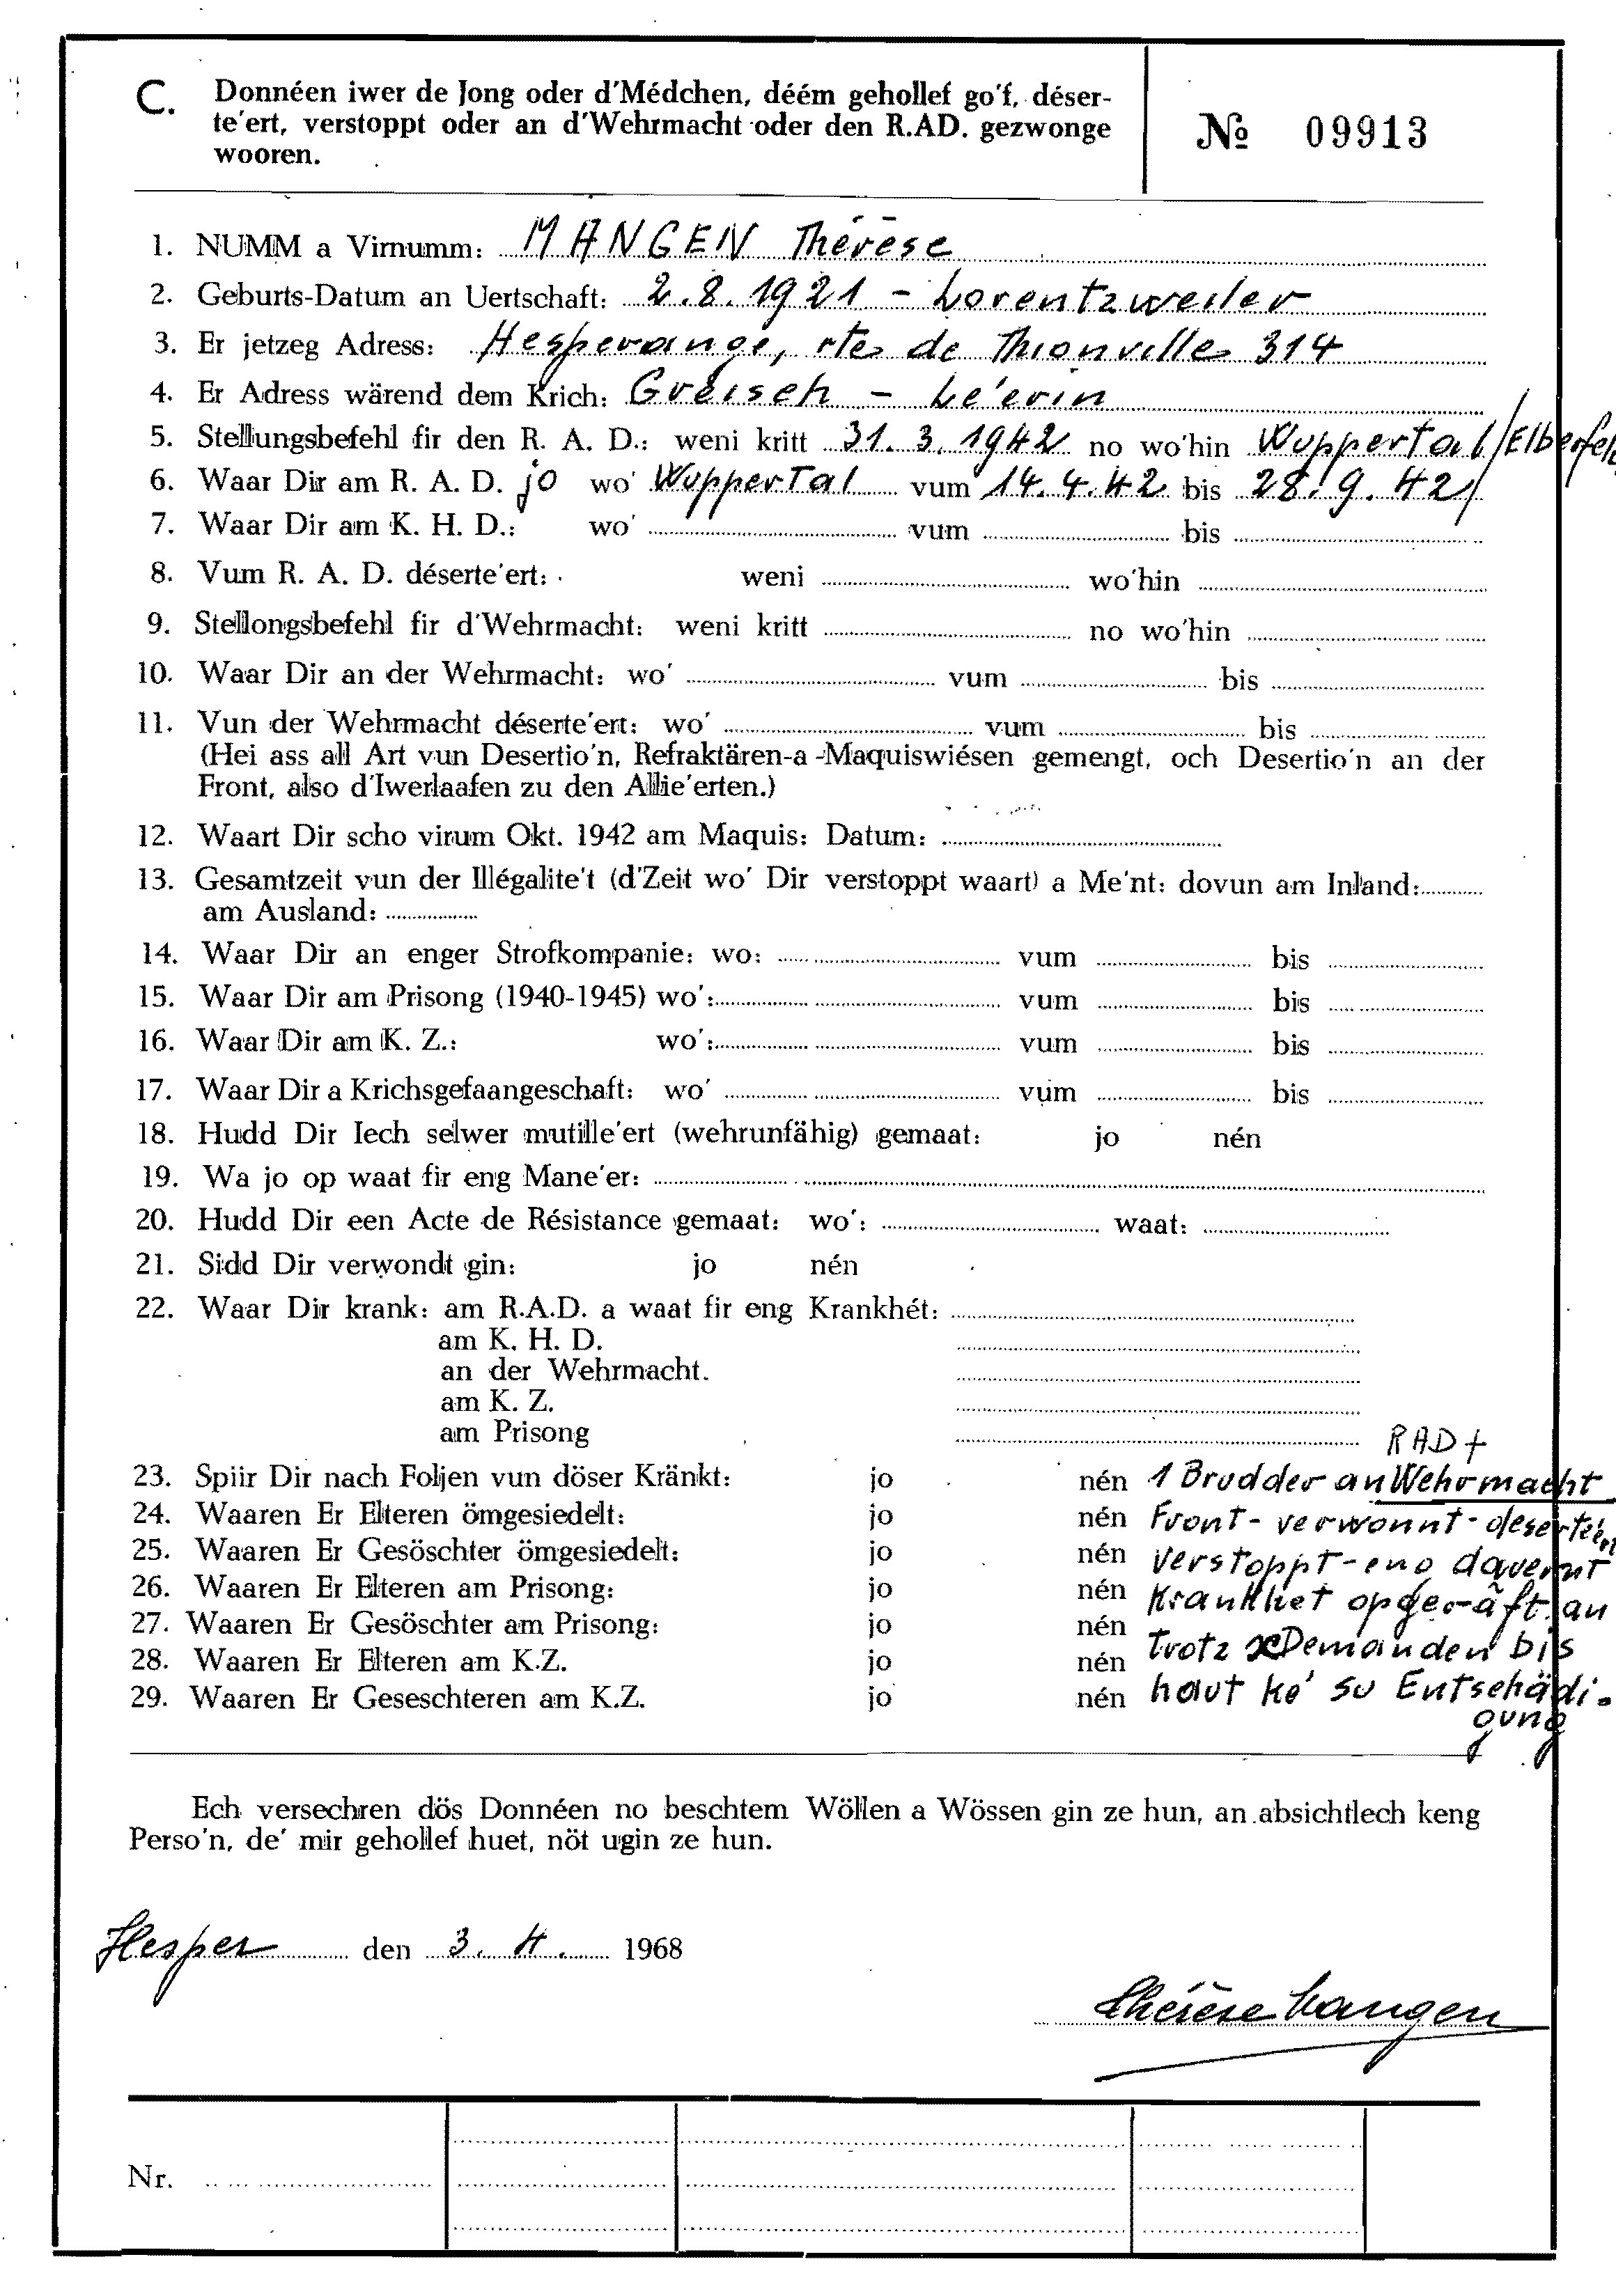 C. Donnéen iwer de Jong oder d'Médchen, déém gehollef go'f, déser-
te'ert, verstoppt oder an d'Wehrmacht oder den R.AD. gezwonge
wooren.
№ 09913
1. NUMM a Virnumm: MANGEN Thérèse
2. Geburts-Datum an Uertschaft: 2.8.1921 - Lorentzweiler
3. Er jetzeg Adress: Hesperange, rte de Thionville 314
4. Er Adress wärend dem Krich: Greisch - Le'erin
5. Stellungsbefehl fir den R. A. D.: weni kritt 31.3.1942 no wo'hin Wuppertal/Elberfeld
6. Waar Dir am R. A. D. jo wo' Wuppertal vum 14.4.42 bis 28.9.42/
7. Waar Dir am K. H. D.: wo' vum bis
8. Vum R. A. D. déserte'ert: weni wo'hin
9. Stellongsbefehl fir d'Wehrmacht: weni kritt no wo'hin
10. Waar Dir an der Wehrmacht: wo' vum bis
11. Vun der Wehrmacht déserte'ert: wo' vum bis
(Hei ass all Art vun Desertio'n, Refraktären-a -Maquiswiésen gemengt, och Desertio'n an der
Front, also d'Iwerlaafen zu den Allie'erten.)
12. Waart Dir scho virum Okt. 1942 am Maquis: Datum:
13. Gesamtzeit vun der Illégalite't (d'Zeit wo' Dir verstoppt waart) a Me'nt: dovun am Inland:
am Ausland:
14. Waar Dir an enger Strofkompanie: wo: vum bis
15. Waar Dir am Prisong (1940-1945) wo': vum bis
16. Waar Dir am K. Z.: wo': vum bis
17. Waar Dir a Krichsgefaangeschaft: wo' vum bis
18. Hudd Dir Iech selwer mutille'ert (wehrunfähig) gemaat: jo nén
19. Wa jo op waat fir eng Mane'er:
20. Hudd Dir een Acte de Résistance gemaat: wo': waat:
21. Sidd Dir verwondt gin: jo nén
22. Waar Dir krank: am R.A.D. a waat fir eng Krankhét:
am K. H. D.
an der Wehrmacht.
am K. Z.
am Prisong
RAD +
23. Spiir Dir nach Foljen vun döser Kränkt: jo nén 1 Brudder an Wehrmacht
24. Waaren Er Elteren ömgesiedelt: jo nén Front - verwonnt - déserteiert
25. Waaren Er Gesöschter ömgesiedelt: jo nén verstoppt - eng dauernt
26. Waaren Er Elteren am Prisong: jo nén Krankhet opgeräft an
27. Waaren Er Gesöschter am Prisong: jo nén
28. Waaren Er Elteren am K.Z. jo nén trotz Demanden bis
29. Waaren Er Geseschteren am K.Z. jo nén haut ke' su Entschädi-
gung
Ech versechren dös Donnéen no beschtem Wöllen a Wössen gin ze hun, an absichtlech keng
Perso'n, de' mir gehollef huet, nöt ugin ze hun.
Hesper den 3. 4. 1968
Thérèse Mangen
Nr.